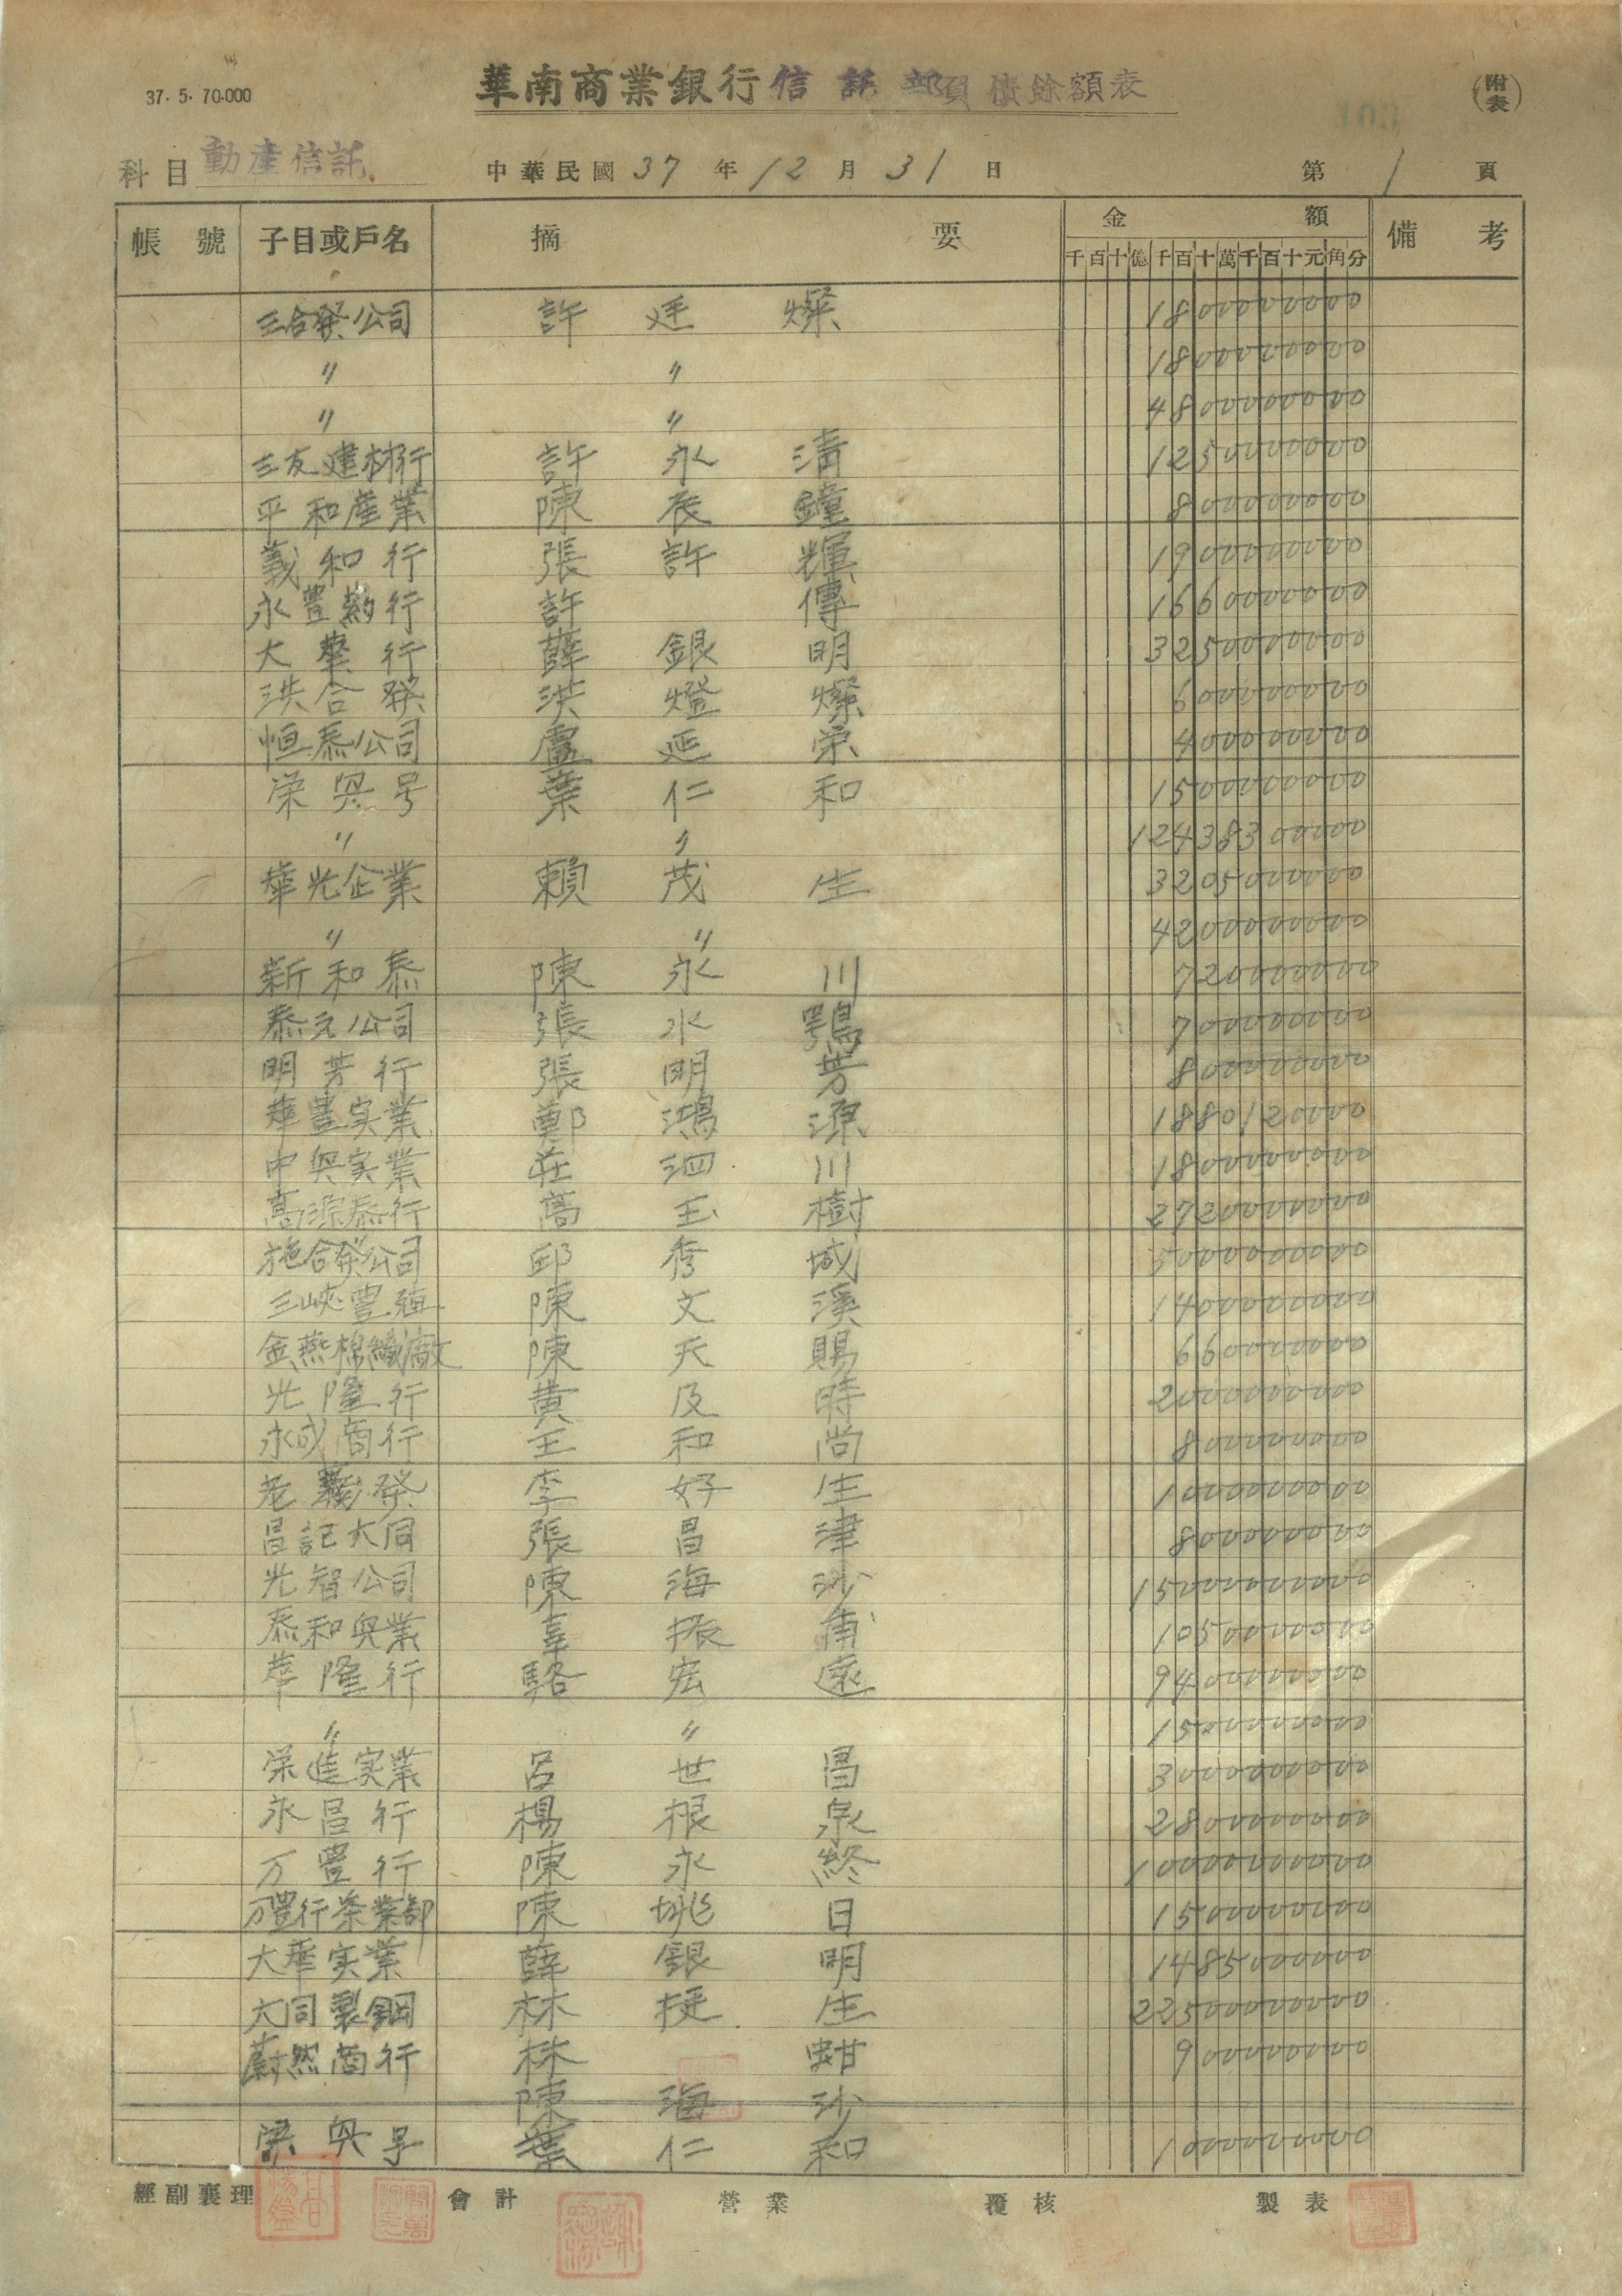 37. 5. 70.000
華南商業銀行信託部負債餘額表
(附表)
科目 動產信託 中華民國 37 年 12 月 31 日 第 1 頁
帳號 子目或戶名 摘要 金額 備考
千百十億千百十萬千百十元角分
三合發公司 許廷燦 1800000000
〃 〃 1800000000
〃 〃 4800000000
三友建材行 許永清 1250000000
平和産業 陳辰鐘 800000000
義和行 張許輝 1900000000
永豊葯行 許傳 1660000000
大華行 薛銀明 3250000000
洪合發 洪燈燦 600000000
恒泰公司 盧延荣 400000000
荣興号 葉仁和 1500000000
〃 〃 12438300000
華光企業 賴茂生 3205000000
〃 〃 4200000000
新和泰 陳永川 720000000
泰元公司 張水鶚 700000000
明芳行 張明芳 800000000
華豊実業 鄭鴻源 1880120000
中興実業 莊泗川 1800000000
高源泰行 高玉樹 2720000000
施合發公司 邱秀城 5000000000
三峽豊殖 陳文溪 1400000000
金燕棉織廠 陳天賜 660000000
光隆行 黄及時 2000000000
永成商行 王和尚 800000000
老義發 李好生 1000000000
昌記大同 張昌津 800000000
光智公司 陳海沙 15000000000
泰和興業 辜振甫 1050000000
華隆行 駱宏遠 9400000000
〃 〃 1500000000
荣進実業 呂世昌 3000000000
永昌行 楊根泉 2800000000
万豊行 陳永終 10000000000
万豊行茶業部 陳姚日 1500000000
大華実業 薛銀明 1485000000
大同製鋼 林挺生 22500000000
蔚然商行 林蚶 900000000
陳海沙
荣興号 葉仁和 1000000000
經副襄理 會計 營業 覆核 製表